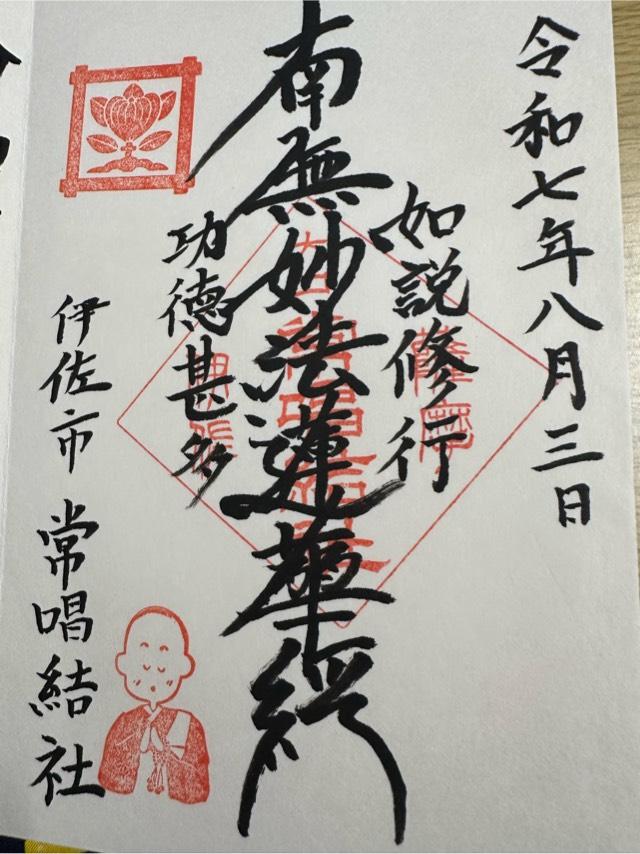 令和七年八月三日
如説修行
南無妙法蓮華経
功徳甚多
伊佐市 常唱結社